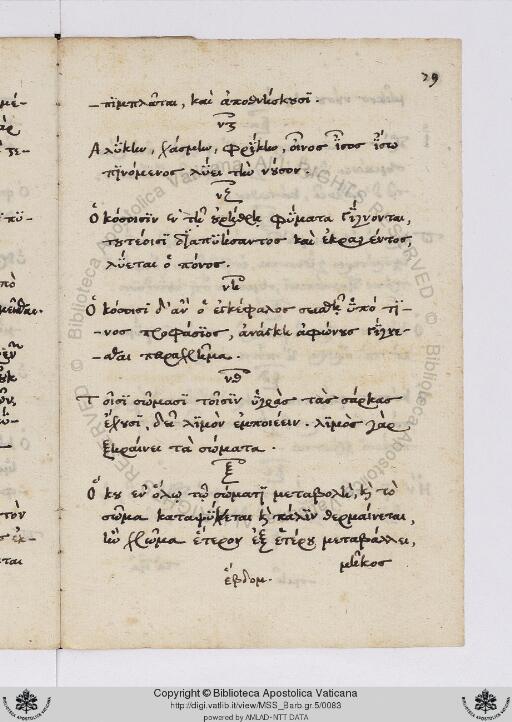 79
-πίμπλαται, καὶ ἀποθνήσκουσι.
νϛ
Ἀλύκην, χάσμην, φρίκην, οἶνος ἴσος ἴσῳ
πινόμενος λύει τὴν νοῦσον.
νζ
Ὁκόσοισιν ἐν τῇ οὐρήθρῃ φύματα γίνονται,
τουτέοισι διαπυήσαντος καὶ ἐκραγέντος,
λύεται ὁ πόνος.
νη
Ὁκόσοισι δ' ἂν ὁ ἐγκέφαλος σεισθῇ ὑπό τι-
-νος προφάσιος, ἀνάγκη ἀφώνους γίνε-
-σθαι παραχρῆμα.
νθ
Τοῖσι σώμασι τοῖσιν ὑγρὰς τὰς σάρκας
ἔχουσι, δεῖ λιμὸν ἐμποιέειν. λιμὸς γὰρ
ξηραίνει τὰ σώματα.
ξ
Ὅκου ἐν ὅλῳ τῷ σώματι μεταβολὴ, κ τὸ
σῶμα καταψύχεται κ πάλιν θερμαίνεται,
ἢ χρῶμα ἕτερον ἐξ ἑτέρου μεταβάλλει,
μῆκος
ἕβδομ.
Copyright © Biblioteca Apostolica Vaticana
http://digi.vatlib.it/view/MSS_Barb.gr.5/0083
powered by AMLAD-NTT DATA